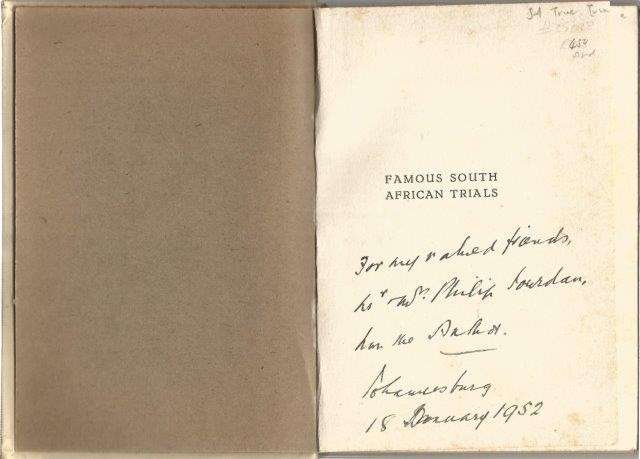 SA True Crime
FAMOUS SOUTH
AFRICAN TRIALS
For my valued friends,
Mr & Mrs. Philip Jourdan,
from the Author.
Johannesburg
18 January 1952